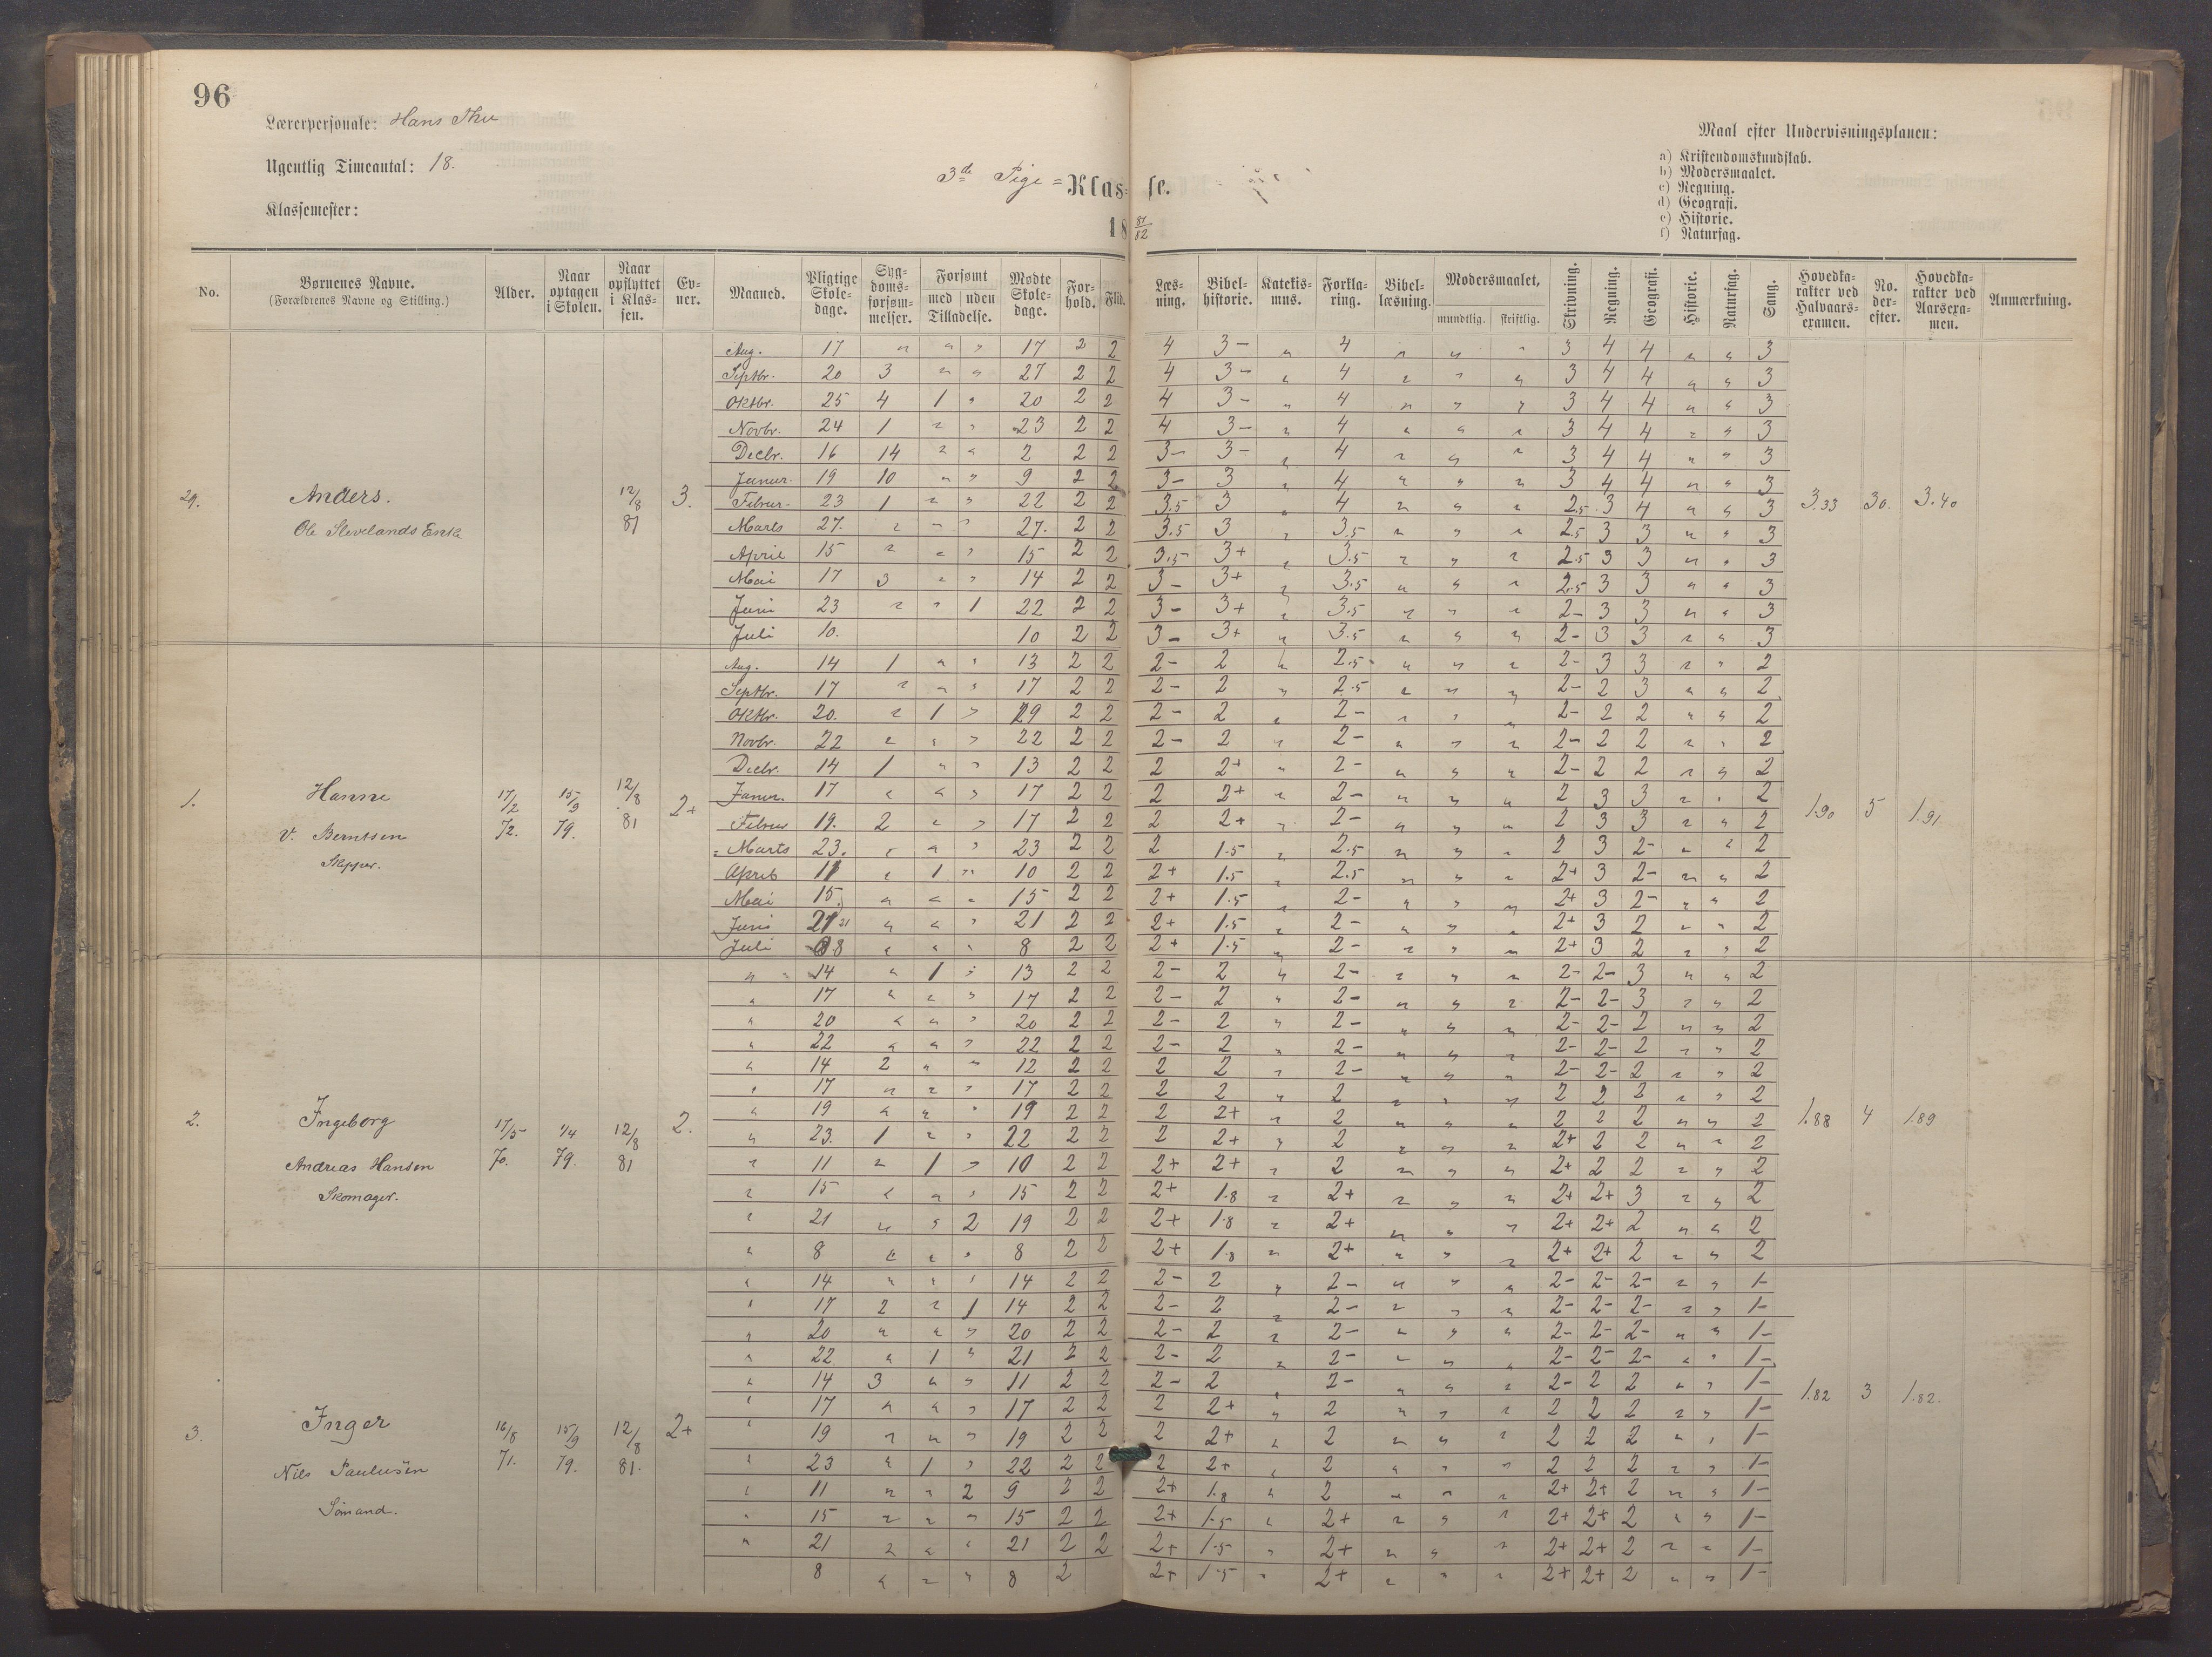 96
Lærerpersonale: Hans Thu
Ugentlig Timeantal: 18.
Klassemester:
3de Pige = Klas= se.
18 81/82
Maal efter Undervisningsplanen:
a) Kristendomskundskab.
b) Modersmaalet.
c) Regning.
d) Geografi.
e) Historie.
f) Naturfag.
No. Børnenes Navne. (Forældrenes Navne og Stilling.) Alder. Naar optagen i Skolen. Naar opflyttet i Klassen. Evner. Maaned. Pligtige Skoledage. Sygdomsforsømmelser. Forsømt med uden Tilladelse. Mødte Skoledage. Forhold. Flid. Læsning. Bibelhistorie. Katekismus. Forklaring. Bibellæsning. Modersmaalet, mundtlig. skriftlig. Skrivning. Regning. Geografi. Historie. Naturfag. Sang. Hovedkarakter ved Halvaarsexamen. No. derefter. Hovedkarakter ved Aarsexamen. Anmærkning.
29. Anders. 12/8 81 3. 3.33 30. 3.40
Ole Slevelands Enke
Aug. 17 " " " 17 2 2 4 3- " 4 " " " 3 4 4 " " 3
Septbr. 20 3 " " 27 2 2 4 3- " 4 " " " 3 4 4 " " 3
Oktbr. 25 4 1 " 20 2 2 4 3- " 4 " " " 3 4 4 " " 3
Novbr. 24 1 " " 23 2 2 4 3- " 4 " " " 3 4 4 " " 3
Decbr. 16 14 " " 2 2 2 3- 3- " 4 " " " 3 4 4 " " 3
Januar. 19 10 " " 9 2 2 3- 3 " 4 " " " 3 4 4 " " 3
Februar. 23 1 " " 22 2 2 3.5 3 " 4 " " " 2.5 3 4 " " 3
Marts 27. " " " 27. 2 2 3.5 3 " 3.5 " " " 2.5 3 3 " " 3
April 15 " " " 15 2 2 3.5 3+ " 3.5 " " " 2.5 3 3 " " 3
Mai 17 3 " " 14 2 2 3- 3+ " 3.5 " " " 2.5 3 3 " " 3
Juni 23 " " 1 22 2 2 3- 3+ " 3.5 " " " 2- 3 3 " " 3
Juli 10. 10 2 2 3- 3+ " 3.5 " " " 2- 3 3 " " 3
1. Hanne 17/2 72. 15/9 79. 12/8 81 2+ 1.90 5 1.91
V. Berntsen
Skipper.
Aug. 14 1 " " 13 2 2 2- 2 " 2.5 " " " 2- 3 3 " " 2
Septbr. 17 " " " 17 2 2 2- 2 " 2.5 " " " 2- 2 3 " " 2
Oktbr. 20. " 1 " 19 2 2 2- 2 " 2- " " " 2- 2 2 " " 2
Novbr. 22 " " " 22 2 2 2- 2 " 2- " " " 2- 2 2 " " 2
Decbr. 14 1 " " 13 2 2 2 2+ " 2- " " " 2- 2 2 " " 2
Januar. 17 " " " 17 2 2 2 2+ " 2- " " " 2 3 3 " " 2
Februar 19. 2 " " 17 2 2 2 2+ " 2- " " " 2 3 3 " " 2
Marts 23. " " " 23 2 2 2 1.5 " 2.5 " " " 2 3 2- " " 2
April 11 " 1 " 10 2 2 2+ 1.5 " 2.5 " " " 2+ 3 2- " " 2
Mai 15. " " " 15 2 2 2+ 1.5 " 2- " " " 2+ 3 2- " " 2
Juni 21 21 " " " 21 2 2 2+ 1.5 " 2- " " " 2+ 3 2 " " 2
Juli 8 " " " 8 2 2 2+ 1.5 " 2- " " " 2+ 3 2 " " 2
2. Ingeborg 17/5 70. 1/4 79. 12/8 81 2. 1.88 4 1.89
Andreas Hansen
Skomager.
" 14 " 1 " 13 2 2 2- 2 " 2- " " " 2- 2- 3 " " 2
" 17 " " " 17 2 2 2- 2 " 2- " " " 2- 2- 3 " " 2
" 20 " " " 20 2 2 2- 2 " 2- " " " 2- 2- 2 " " 2
" 22 " " " 22 2 2 2- 2 " 2- " " " 2- 2- 2 " " 2
" 14 2 " " 12 2 2 2 2 " 2- " " " 2- 2- 2 " " 2
" 17 " " " 17 2 2 2 2 " 2 " " " 2 2 2 " " 2
" 19 " " " 19 2 2 2 2+ " 2 " " " 2 2 2 " " 2
" 23. 1 " " 22 2 2 2 2+ " 2 " " " 2+ 2 2 " " 2
" 11 " 1 " 10 2 2 2+ 2+ " 2 " " " 2+ 2 2 " " 2
" 15 " " " 15 2 2 2+ 1.8 " 2+ " " " 2+ 2+ 3 " " 2
" 21 " " 2 19 2 2 2+ 1.8 " 2+ " " " 2+ 2+ 2 " " 2
" 8 " " " 8 2 2 2+ 1.8 " 2+ " " " 2+ 2+ 2 " " 2
3. Inger 16/8 71. 15/9 79. 12/8 81. 2+ 1.82 3 1.82.
Nils Paulusen
Sømand.
" 14 " " " 14 2 2 2- 2 " 2- " " " 2- 2- 2- " " 1-
" 17 2 " 1 14 2 2 2- 2 " 2- " " " 2- 2- 2- " " 1-
" 20 " " " 20 2 2 2- 2 " 2- " " " 2- 2- 2- " " 1-
" 22 " 1 " 21 2 2 2- 2 " 2- " " " 2- 2- 2- " " 1-
" 14 3 " " 11 2 2 2- 2 " 2- " " " 2- 2 2 " " 1-
" 17 " " " 17 2 2 2 2+ " 2 " " " 2 2 2 " " 1-
" 19 " " " 19 2 2 2 2+ " 2 " " " 2 2 2 " " 1-
" 23 " 1 " 22 2 2 2 2+ " 2 " " " 2 2 2 " " 1-
" 11 " " 2 9 2 2 2+ 1.8 " 2 " " " 2+ 2+ 2 " " 1-
" 15 " " " 15 2 2 2+ 1.5 " 2+ " " " 2+ 2+ 2 " " 1-
" 21 " " " 21 2 2 2+ 1.5 " 2+ " " " 2+ 2+ 2 " " 1-
8 " " " 8 2 2+ 1.5 " 2+ " " " 2+ 2+ 2 " " 1-